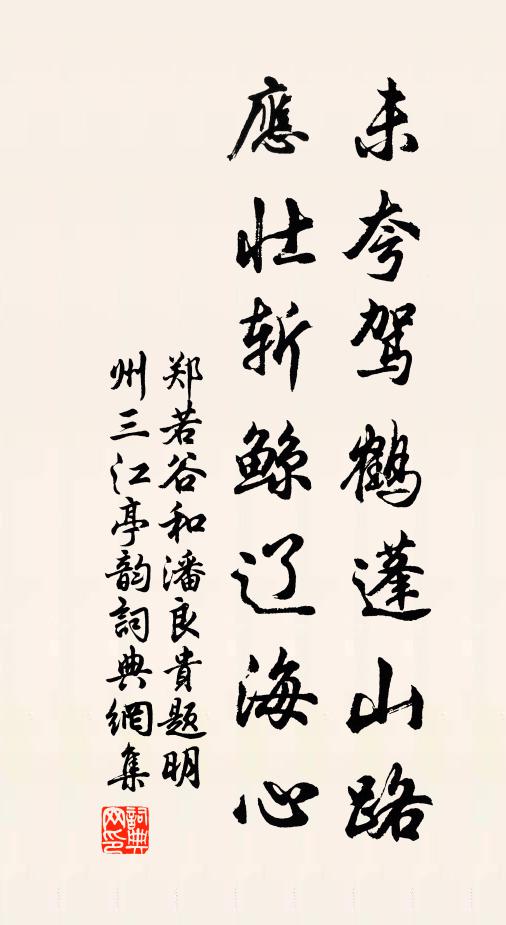 未夸驾鹤蓬山路
應壮斩鲸辽海心
郑若谷和潘良貴题明
州三江亭韵詞典網集
詞典
网印